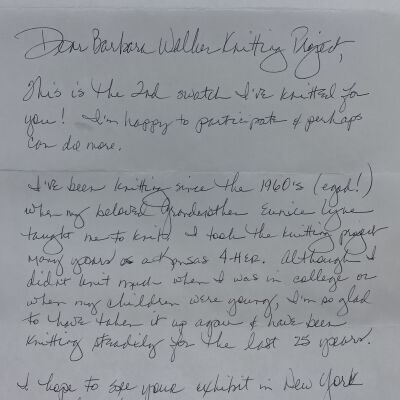 Dear Barbara Walker Knitting Project,
This is the 2nd swatch I've knitted for
you! I'm happy to participate & perhaps
can do more.
I've been knitting since the 1960's (egad!)
when my beloved grandmother Eunice Lyne
taught me to knit. I took the knitting project
many years as a Kansas 4-Her. Although I
didn't knit much when I was in college or
when my children were young, I'm so glad
to have taken it up again & have been
knitting steadily for the last 25 years.
I hope to see your exhibit in New York